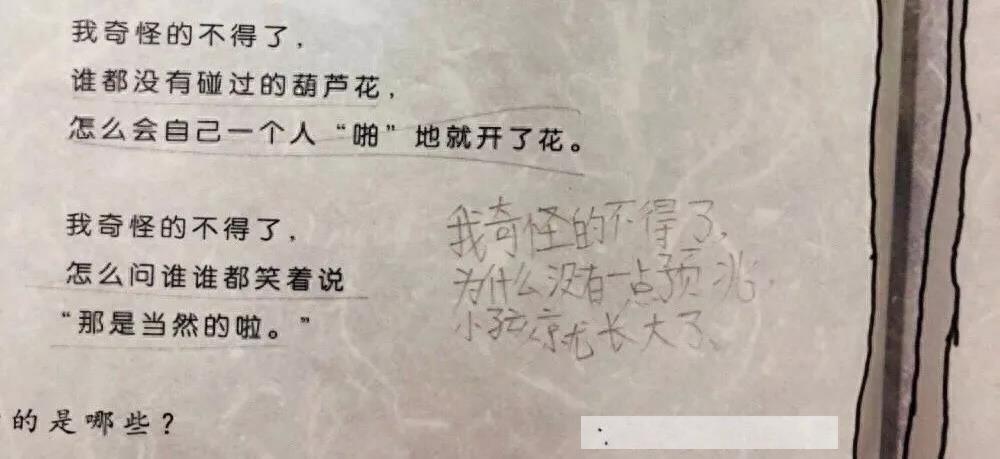 我奇怪的不得了，
谁都没有碰过的葫芦花，
怎么会自己一个人“啪”地就开了花。
我奇怪的不得了，
怎么问谁谁都笑着说
“那是当然的啦。”
我奇怪的不得了，
为什么没有一点预兆，
小孩就长大了、
的是哪些？